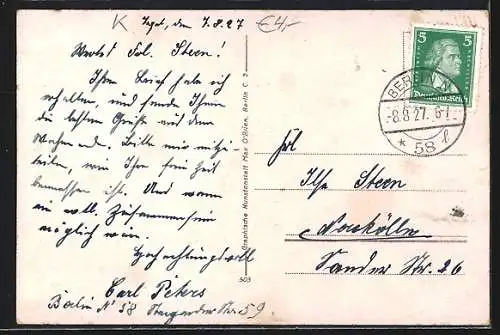 K
Tegel, den 7.8.27
€4,-
Wertes Frl. Stern!
Ihren Brief habe ich
erhalten, und sende Ihnen
die besten Grüße aus dem
Bitte mir mitzu-
teilen, wie Ihre frei Zeit
bemessen ist. Und wann
ein evtl. Zusammensein
möglich wäre.
Hochachtungsvoll
Carl Peters
Berlin N 58 Stargarder Str. 59
Graphische Kunstanstalt Max O'Brien, Berlin C. 2
503
5 5
Deutsches Reich
BERLIN N
-8.8.27. 6-7
* 58 l
Frl
Ilse Stern
Neukölln
Sander Str. 26